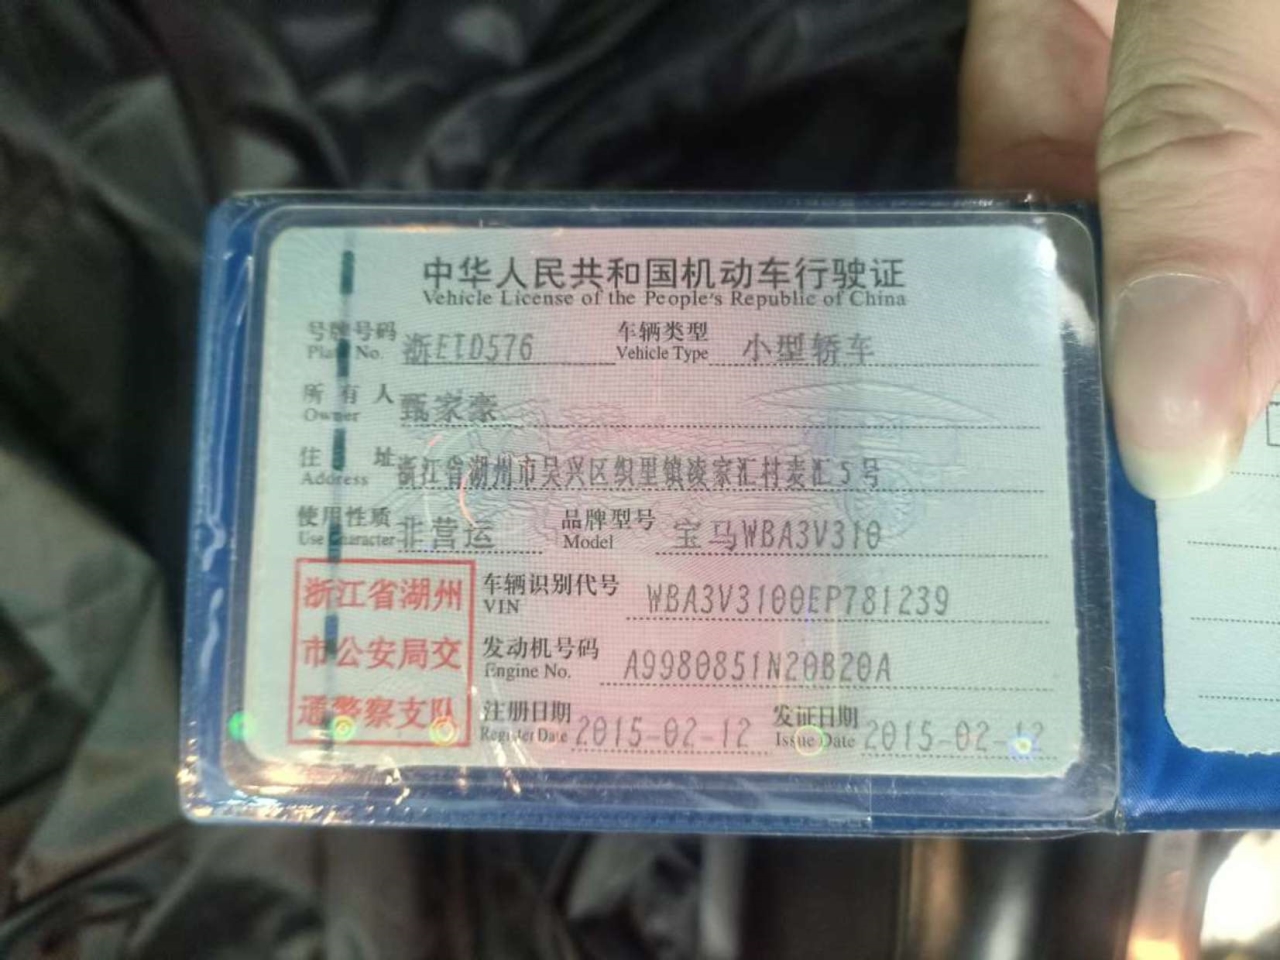 中华人民共和国机动车行驶证
Vehicle License of the People's Republic of China
号牌号码 浙EID576 车辆类型 小型轿车
Plate No. Vehicle Type
所有人 甄家豪
Owner
住址 浙江省湖州市吴兴区织里镇凌家汇村麦汇5号
Address
使用性质 非营运 品牌型号 宝马WBA3V310
Use Character Model
浙江省湖州
市公安局交
通警察支队
车辆识别代号 WBA3V3100EP781239
VIN
发动机号码 A9980851N20B20A
Engine No.
注册日期 2015-02-12 发证日期 2015-02-12
Register Date Issue Date